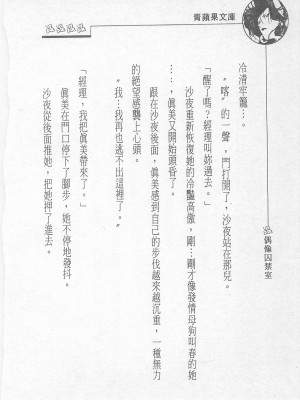 青蘋果文庫
偶像囚禁室
冷滑牢籠…。
〝喀〞的一聲，門打開了，沙夜站在那兒。
「醒了嗎？經理叫妳過去。」
沙夜重新恢復她的冷豔高傲，剛…剛才像發情母狗叫春的她
…，眞美又開始頭昏了。
跟在沙夜後面，眞美感到自己的步伐越來越沉重，一種無力
的絕望感襲上心頭。
〝我…我再也逃不出這裡了。〞
「經理，我把眞美帶來了。」
眞美在門口停下了腳步，她不停地發抖。
沙夜從後面推她，把她押了進去。